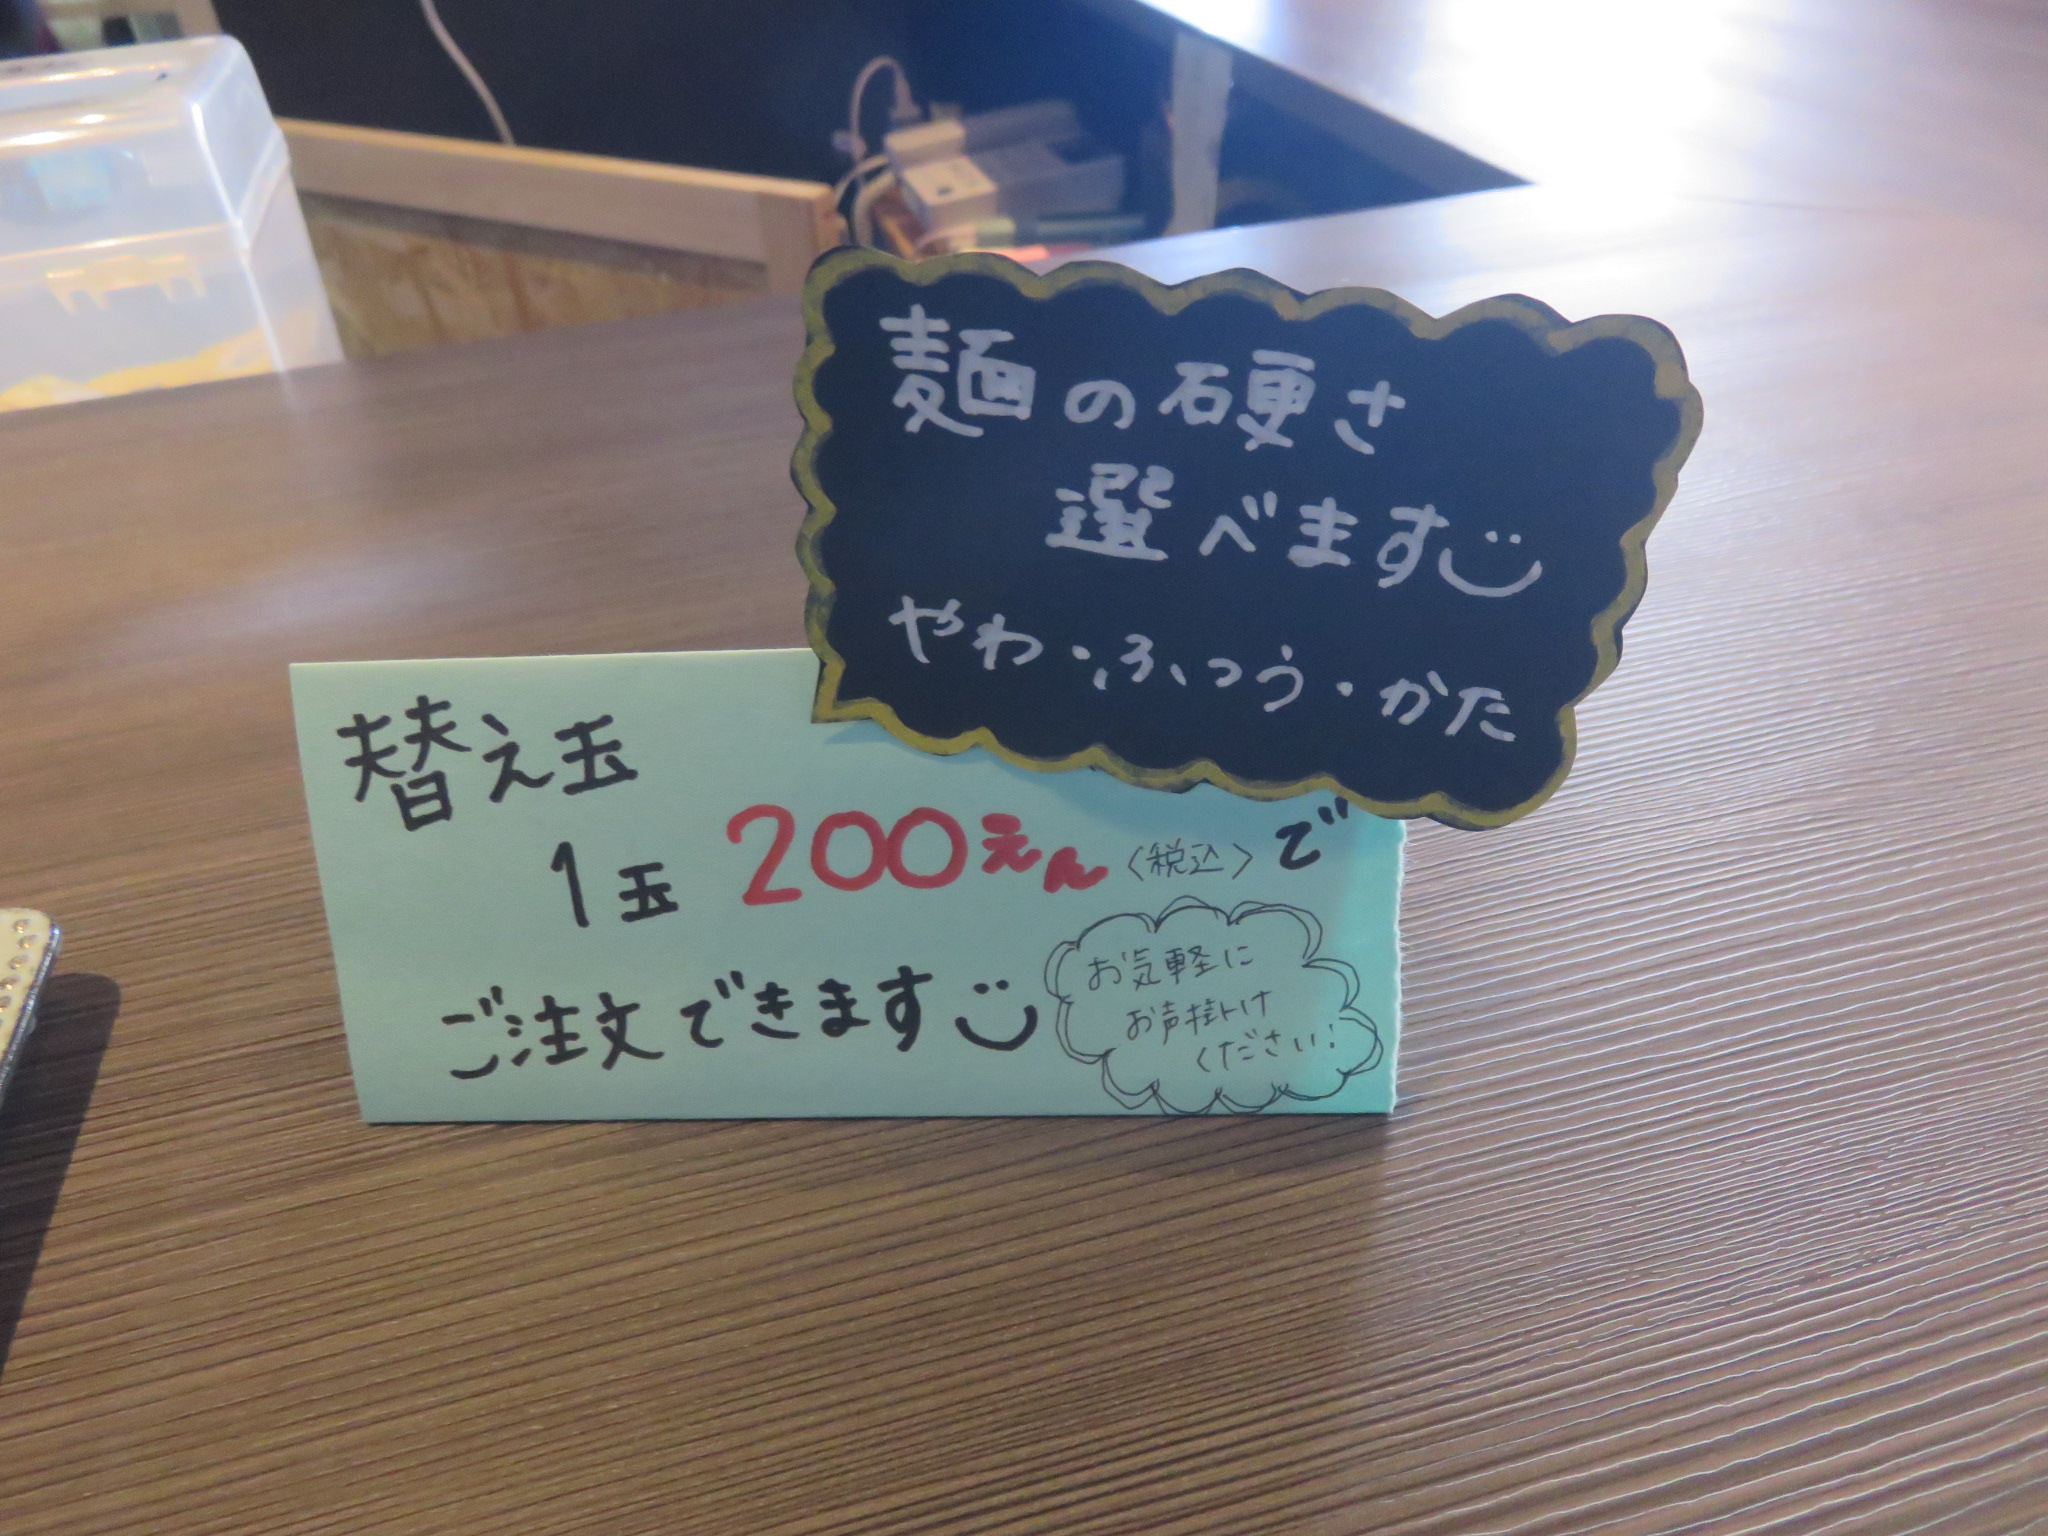 麺の硬さ
選べます
やわ・ふつう・かた
替え玉
1玉 200えん〈税込〉で
ご注文できます
お気軽に
お声掛け
ください!